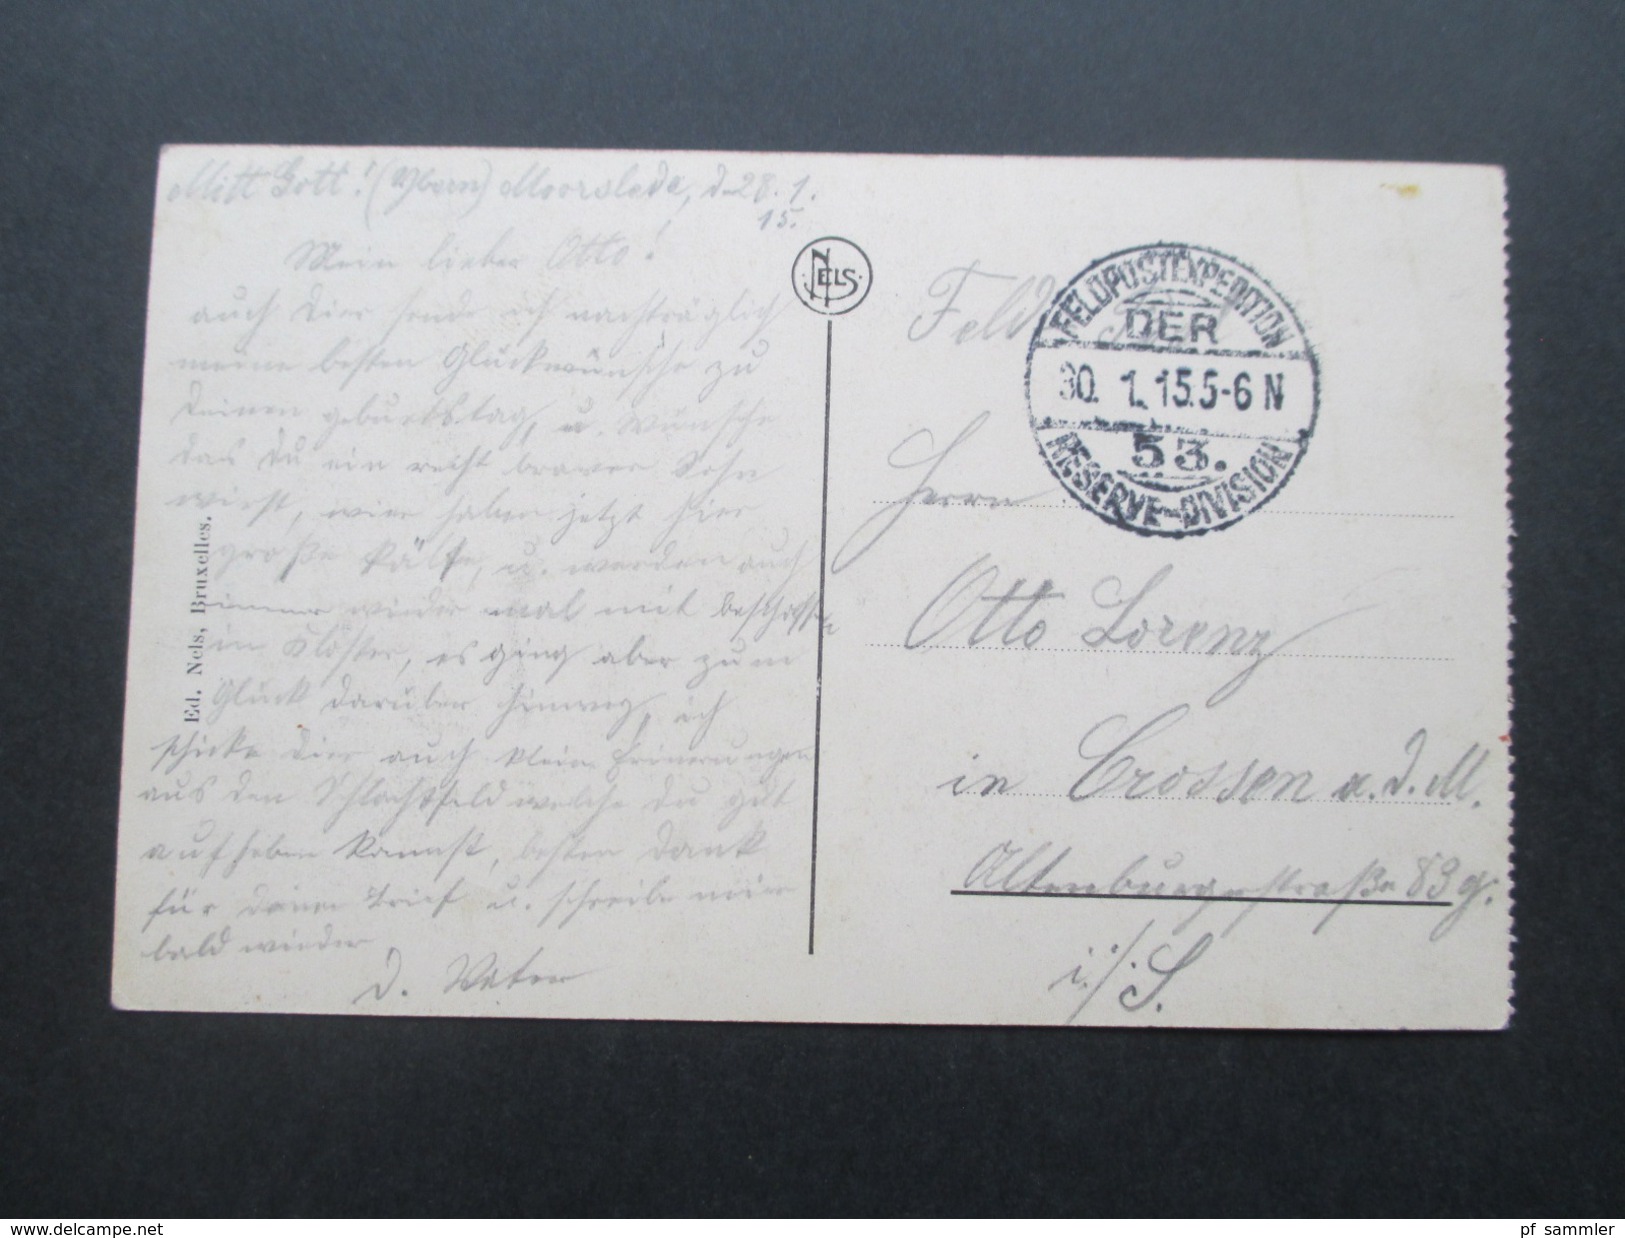 Mitt Gott! (Ybern) Moorslede, d. 28. 1.
15.
Mein lieber Otto!
auch Dier sende ich nachträglich
meine besten Glückwünsche zu
Deinen geburtstag, u. wünsche
das Du ein recht braver Sohn
wirst, wier haben jetzt hier
große Kälte, u. werden auch
immer wieder mal mit beschossen
in Klöster, es ging aber zum
Glück darüber hinweg, ich
schicke Dier auch kleine Erinerungen
aus den Schlachtfeld welche Du gut
auf heben kannst, besten Dank
für deinen Brief u. schreibe mier
bald wieder
D. Vater
Ed. Nels, Bruxelles.
NELS
Feld
FELDPOSTEXPEDITION
DER
30. 1. 15. 5-6 N
53.
RESERVE-DIVISION
Herrn
Otto Lorenz
in Crossen a. d. M.
Altenburgerstraße 83 g.
i./S.
www.delcampe.net
pf_sammler